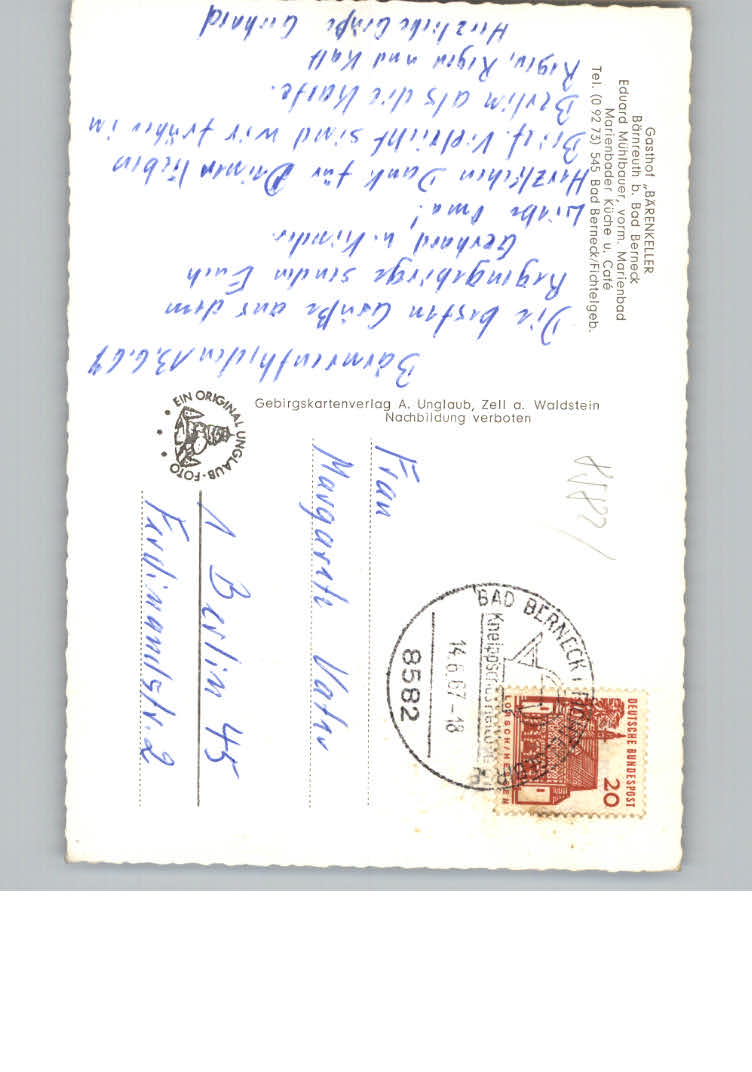 Gasthof „BÄRENKELLER
Bärnreuth b. Bad Berneck
Eduard Mühlbauer, vorm. Marienbad
Marienbader Küche u. Café
Tel. (0 92 73) 545 Bad Berneck/Fichtelgeb.
Bärnreuth, den 13.6.67
Die besten Grüße aus dem
Regengebirge senden Euch
Gerhard u. Kinder.
Liebe Oma!
Herzlichen Dank für Deinen lieben
Brief. Vielleicht sind wir früher in
Berlin als die Karte.
Regen, Regen und Kalt
Herzliche Grüße Gerhard
Gebirgskartenverlag A. Unglaub, Zell a. Waldstein
Nachbildung verboten
EIN ORIGINAL UNGLAUB-FOTO
Frau
Margarete Vater
1 Berlin 45
Ferdinandstr. 2
8582
BAD BERNECK
14.6.67-18
8582
DEUTSCHE BUNDESPOST
20
LORSCH/HESSEN